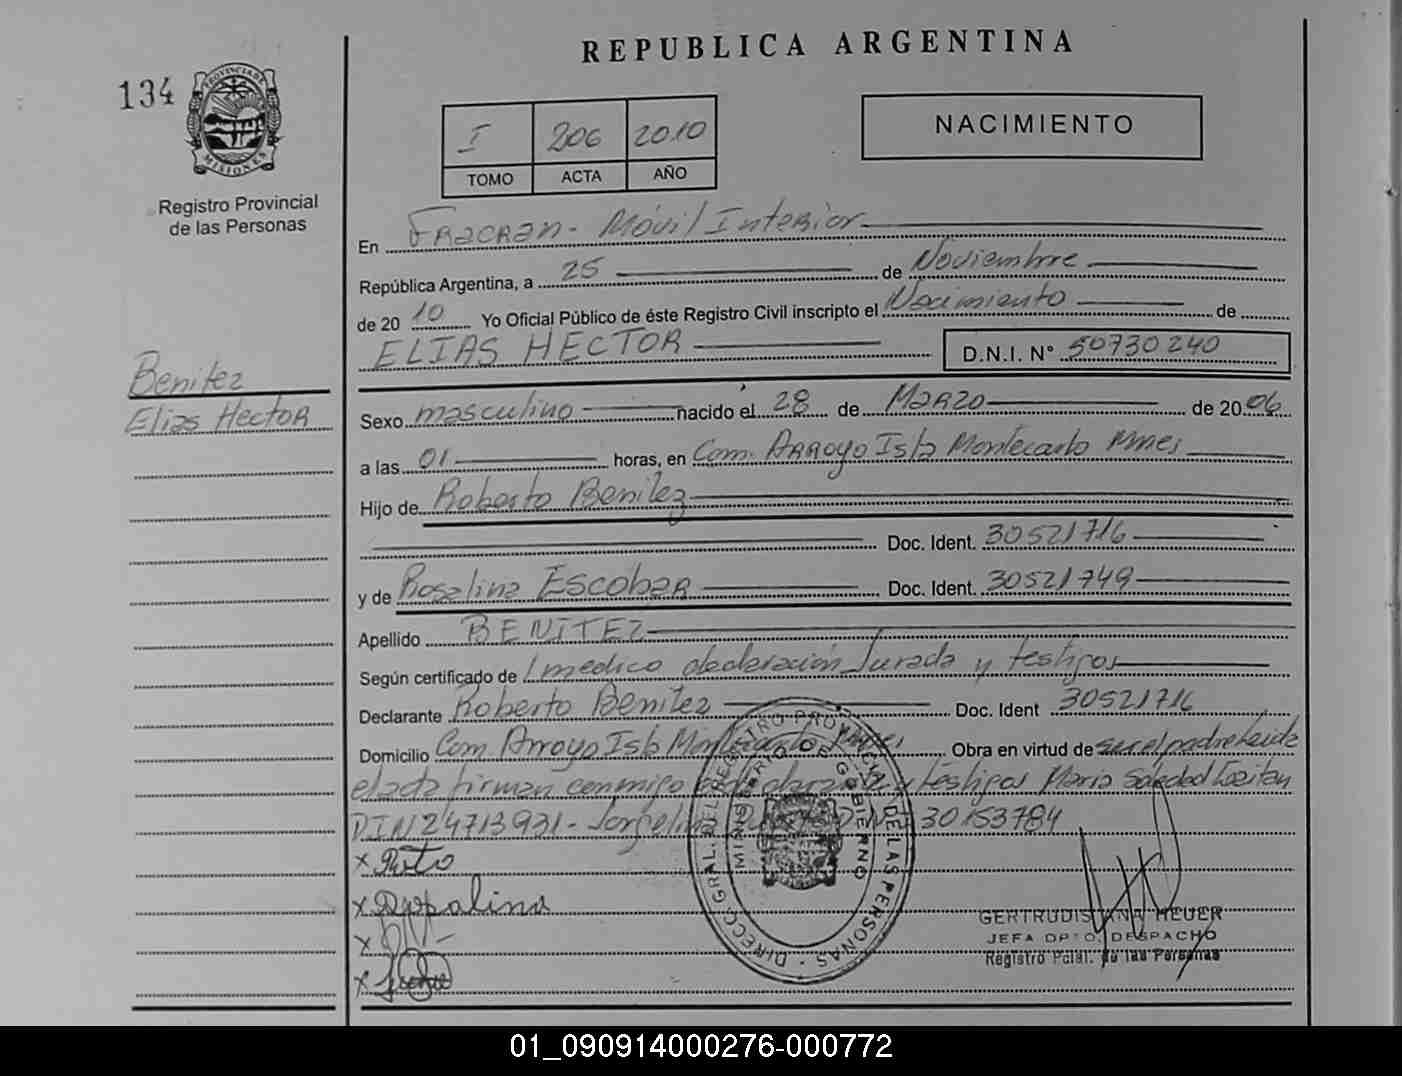 REPUBLICA ARGENTINA
134
PROVINCIA DE MISIONES
Registro Provincial
de las Personas
I 206 2010
TOMO ACTA AÑO
NACIMIENTO
En Fracran - Móvil Interior
República Argentina, a 25 de Noviembre
de 2010 Yo Oficial Público de éste Registro Civil inscripto el Nacimiento de
ELIAS HECTOR D.N.I. N° 50730240
Benitez
Elias Hector
Sexo masculino nacido el 28 de Marzo de 2006
a las 01 horas, en Com. Arroyo Isla Montecarlo Mnes
Hijo de Roberto Benitez
Doc. Ident. 30521716
y de Rosalina Escobar Doc. Ident. 30521749
Apellido BENITEZ
Según certificado de 1 medico declaración Jurada y testigos
Declarante Roberto Benitez Doc. Ident 30521716
Domicilio Com. Arroyo Isla Montecarlo Mnes Obra en virtud de ser el padre Leida
el acta firman conmigo declarante y testigos Maria Soledad
DNI 24713931 - Jorgelina DNI 30153784
GERTRUDIS ANA HEUER
JEFA DPTO. DESPACHO
Registro Pcial. de las Personas
DIRECC. GRAL. DEL REGISTRO PROVINCIAL DE LAS PERSONAS
MINISTERIO DE GOBIERNO
01_090914000276-000772